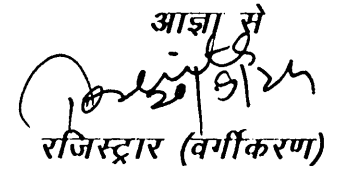 आज्ञा से
रजिस्ट्रार (वर्गीकरण)